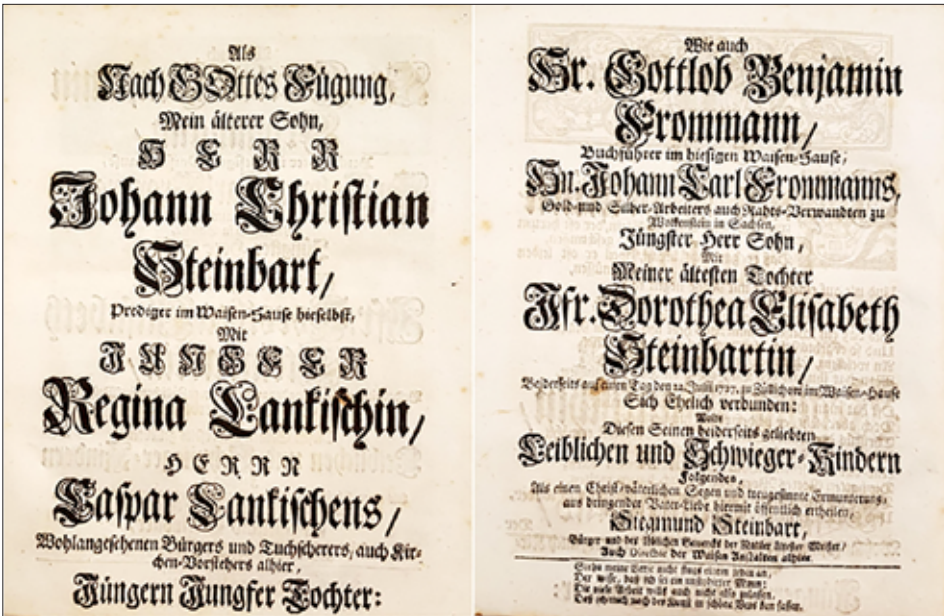 Als
Nach GOttes Fügung,
Mein älterer Sohn,
HERR
Johann Christian
Steinbart,
Prediger im Waisen-Hause hieselbst,
Mit
JUNGFER
Regina Lankischin,
HERRN
Caspar Lankischens,
Wohlangesehenen Bürgers und Tuchscherers, auch Kir-
chen-Vorstehers alhier,
Jüngern Jungfer Tochter:
Wie auch
Hr. Gottlob Benjamin
Frommann,
Buchführer im hiesigen Waisen-Hause,
Hn. Johann Carl Frommanns,
Gold- und Silber-Arbeiters auch Rahts-Verwandten zu
Wolkenstein in Sachsen,
Jüngster Herr Sohn,
Mit
Meiner ältesten Tochter
Jfr. Dorothea Elisabeth
Steinbartin,
Beiderseits auf einen Tag den 22. 1727. zu Züllichow im Waisen-Hause
Sich Ehelich verbunden:
Wolte
Diesen Seinen beiderseits geliebten
Leiblichen und Schwieger-Kindern
Folgendes,
Als einen Christ-väterlichen Segen und treugesinnte Ermunterung,
aus dringender Vater-Liebe hiermit öffentlich ertheilen,
Siegmund Steinbart,
Bürger und des löblichen Gewercks der Nadler ältester Meister,
Auch Director der Waisen Anstalten alhier.
nicht einen jeden an,
Der wisse, daß ich sei ein unstudirter Mann: